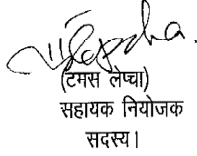 (टमस लेप्चा)
सहायक नियोजक
सदस्य।